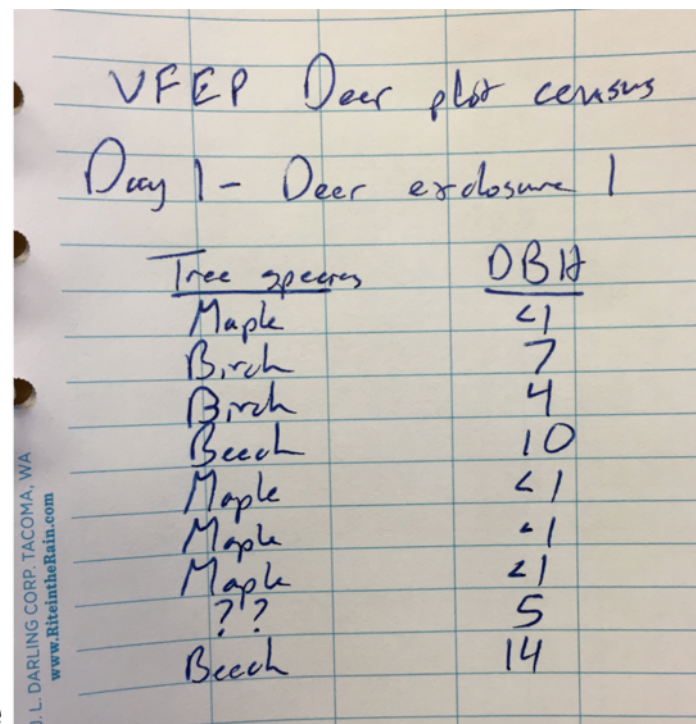 VFEP Deer plot census
Day 1 - Deer exclosure 1
Tree species DBH
Maple <1
Birch 7
Birch 4
Beech 10
Maple <1
Maple <1
Maple <1
?? 5
Beech 14
J. L. DARLING CORP. TACOMA, WA
www.RiteintheRain.com